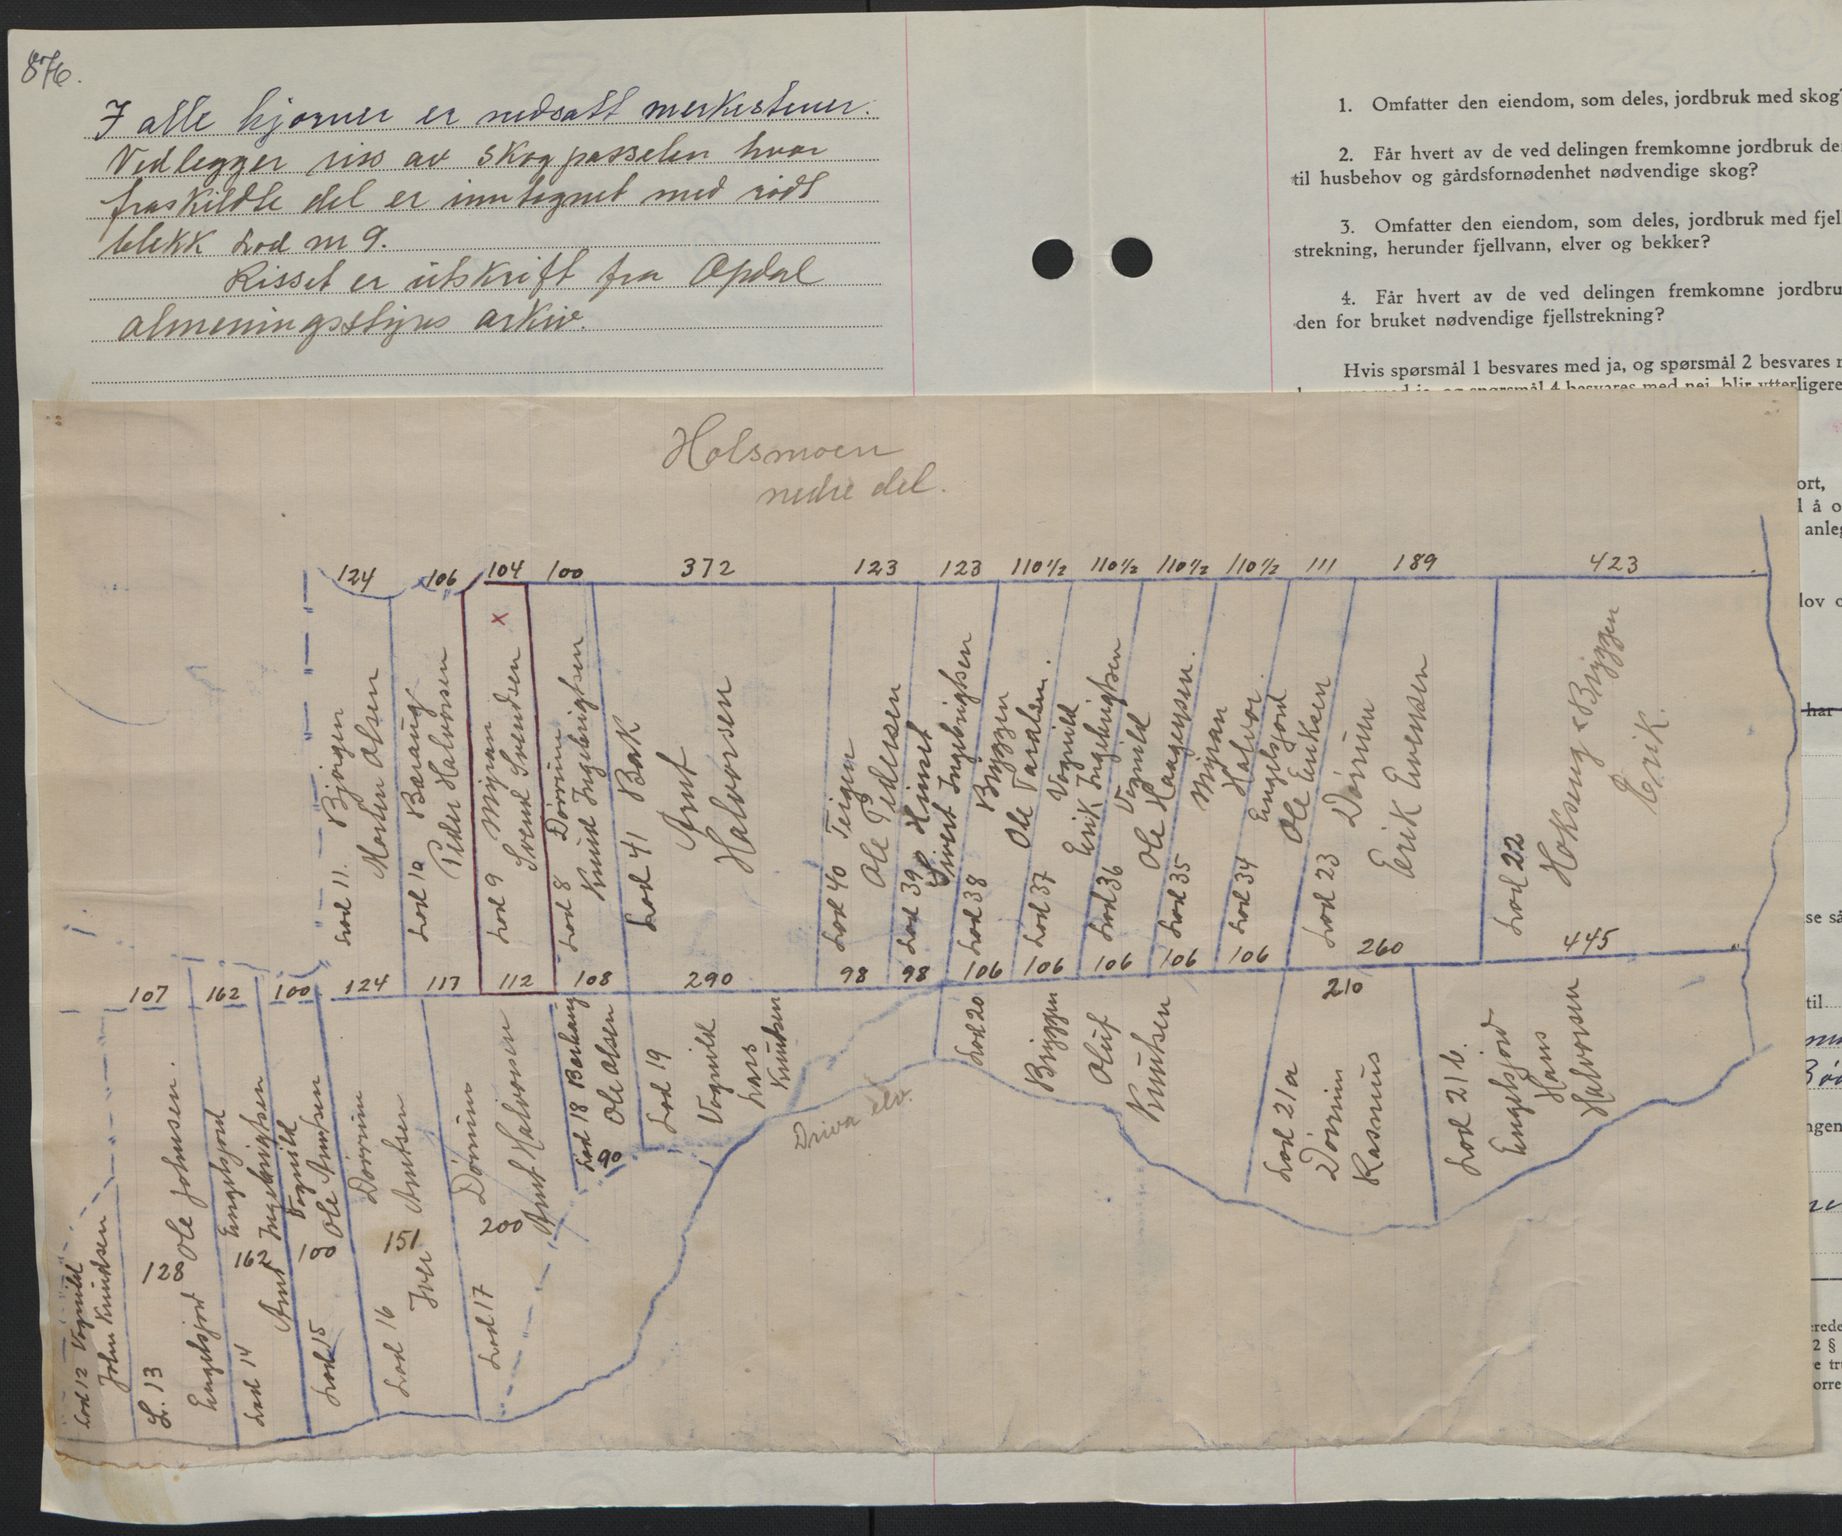 876.
I alle hjørner er nedsatt merkestener.
Vedlegger riss av skogpasselen hvor
fraskildte del er inntegnet med rødt
blekk Lod nr 9.
Risset er utskrift fra Opdal
almeningsstyres arkiv.
1. Omfatter den eiendom, som deles, jordbruk med skog?
2. Får hvert av de ved delingen fremkomne jordbruk de
til husbehov og gårdsfornødenhet nødvendige skog?
3. Omfatter den eiendom, som deles, jordbruk med fjell
strekning, herunder fjellvann, elver og bekker?
4. Får hvert av de ved delingen fremkomne jordbru
den for bruket nødvendige fjellstrekning?
Hvis spørsmål 1 besvares med ja, og spørsmål 2 besvares
Holsmoen
nedre del.
124 106 104 100 372 123 123 110½ 110½ 110½ 110½ 111 189 423
Lod 11. Bjørgen
Morten Olsen
Lod 10 Bæraug
Peder Halvorsen
x
Lod 9 Myran
Svend Svendsen
Lod 8 Dørrum
Knud Ingebrigtsen
Lod 41 Bak
Arnt
Halvorsen
Lod 40 Teigen
Ole Pedersen
Lod 39 Hinset
Sivert Ingebrigtsen
Lod 38 Bryggen
Ole Taralsen.
Lod 37 Vognild
Erik Ingebrigtsen
Lod 36 Vognild
Ole Haagensen.
Lod 35 Myran
Halvor.
Lod 34 Engelsjord
Ole Eriksen
Lod 23 Dørrum
Erik Evensen
Lod 22 Hokseng Bryggen
Erik.
107 162 100 124 117 112 108 290 98 98 106 106 106 106 106 260 445
210
Lod 12 Vognild
John Knudsen
L. 13 128 Ole Johnsen.
Engelsjord
Lod 14 162 Engelsjord
Arnt Ingebrigtsen
Lod 15 100 Vognild
Ole Arntsen
Lod 16 151 Dørrum
Iver Arntsen
Lod 17 200 Dørrum
Arnt Halvorsen
Lod 18 Bærhaug
90 Ole Olsen
Lod 19
Vognild
Lars
Knudsen
Driva elv.
Lod 20
Bryggen
Oluf
Knutsen
Lod 21 a
Dørrum
Rasmus
Lod 21 b.
Engelsjord
Hans
Halvorsen